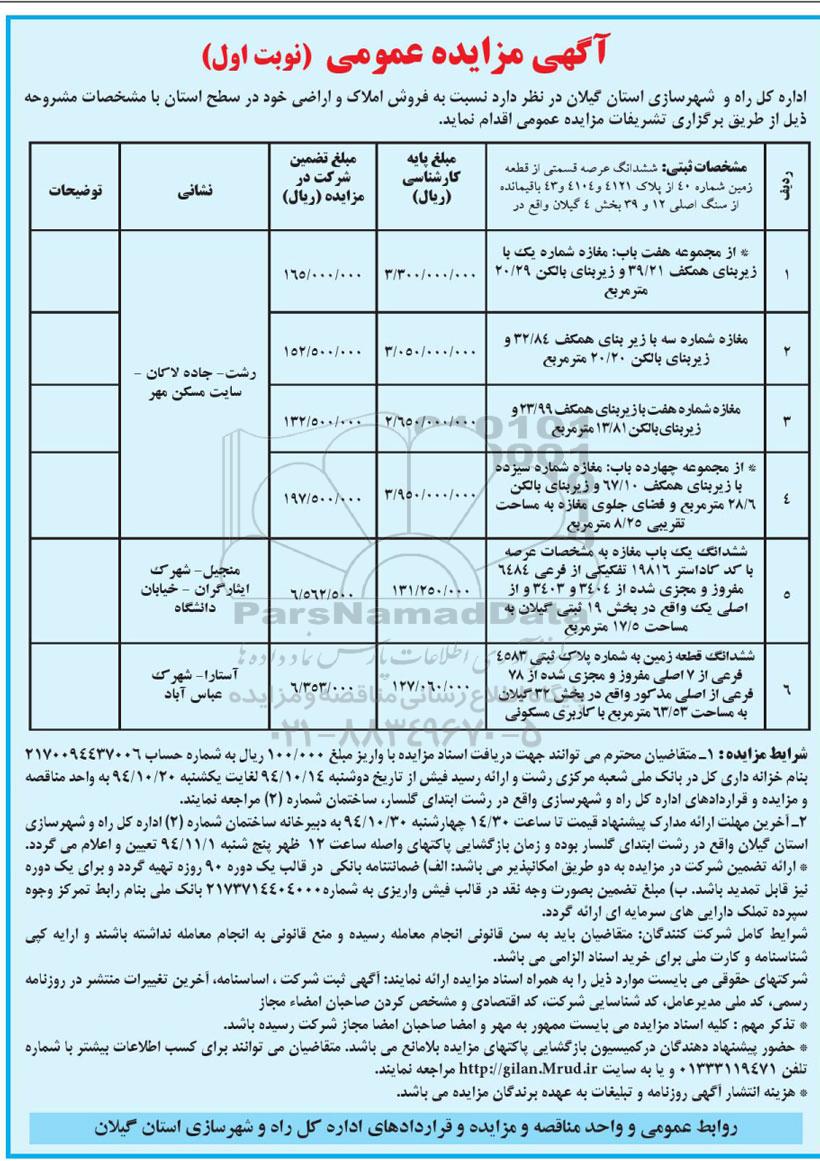 آگهی مزایده عمومی (نوبت اول)
اداره کل راه و شهرسازی استان گیلان در نظر دارد نسبت به فروش املاک و اراضی خود در سطح استان با مشخصات مشروحه
ذیل از طریق برگزاری تشریفات مزایده عمومی اقدام نماید.
ردیف
مشخصات ثبتی: ششدانگ عرصه قسمتی از قطعه
زمین شماره ۴۰ از پلاک ۴۱۲۱ و۴۱۰۴ و۴۳ باقیمانده
از سنگ اصلی ۱۲ و ۳۹ بخش ۴ گیلان واقع در
مبلغ پایه
کارشناسی
(ریال)
مبلغ تضمین
شرکت در
مزایده (ریال)
نشانی
توضیحات
۱
* از مجموعه هفت باب: مغازه شماره یک با
زیربنای همکف ۳۹/۲۱ و زیربنای بالکن ۲۰/۲۹
مترمربع
۳/۳۰۰/۰۰۰/۰۰۰
۱۶۵/۰۰۰/۰۰۰
رشت- جاده لاکان -
سایت مسکن مهر
۲
مغازه شماره سه با زیر بنای همکف ۳۲/۸۴ و
زیربنای بالکن ۲۰/۲۰ مترمربع
۳/۰۵۰/۰۰۰/۰۰۰
۱۵۲/۵۰۰/۰۰۰
۳
مغازه شماره هفت با زیربنای همکف ۲۳/۹۹ و
زیربنای بالکن ۱۳/۸۱ مترمربع
۲/۶۵۰/۰۰۰/۰۰۰
۱۳۲/۵۰۰/۰۰۰
۴
* از مجموعه چهارده باب: مغازه شماره سیزده
با زیربنای همکف ۶۷/۱۰ و زیربنای بالکن
۲۸/۶ مترمربع و فضای جلوی مغازه به مساحت
تقریبی ۸/۲۵ مترمربع
۳/۹۵۰/۰۰۰/۰۰۰
۱۹۷/۵۰۰/۰۰۰
۵
ششدانگ یک باب مغازه به مشخصات عرصه
با کد کاداستر ۱۹۸۱۶ تفکیکی از فرعی ۶۴۸۴
مفروز و مجزی شده از ۳۴۰۴ و ۳۴۰۳ و از
اصلی یک واقع در بخش ۱۹ ثبتی گیلان به
مساحت ۱۷/۵ مترمربع
۱۳۱/۲۵۰/۰۰۰
۶/۵۶۲/۵۰۰
منجیل- شهرک
ایثارگران - خیابان
دانشگاه
۶
ششدانگ قطعه زمین به شماره پلاک ثبتی ۴۵۸۳
فرعی از ۷ اصلی مفروز و مجزی شده از ۷۸
فرعی از اصلی مذکور واقع در بخش ۳۲ گیلان
به مساحت ۶۳/۵۳ مترمربع با کاربری مسکونی
۱۲۷/۰۶۰/۰۰۰
۶/۳۵۳/۰۰۰
آستارا- شهرک
عباس آباد
ParsNamadData
پایگاه اطلاع رسانی مناقصه و مزایده
۰۲۱-۸۸۳۴۹۶۷۰-۵
شرایط مزایده : ۱ـ متقاضیان محترم می توانند جهت دریافت اسناد مزایده با واریز مبلغ ۱۰۰/۰۰۰ ریال به شماره حساب ۲۱۷۰۰۹۴۴۳۷۰۰۶
بنام خزانه داری کل در بانک ملی شعبه مرکزی رشت و ارائه رسید فیش از تاریخ دوشنبه ۹۴/۱۰/۱۴ لغایت یکشنبه ۹۴/۱۰/۲۰ به واحد مناقصه
و مزایده و قراردادهای اداره کل راه و شهرسازی واقع در رشت ابتدای گلسار، ساختمان شماره (۲) مراجعه نمایند.
۲ـ آخرین مهلت ارائه مدارک پیشنهاد قیمت تا ساعت ۱۴/۳۰ چهارشنبه ۹۴/۱۰/۳۰ به دبیرخانه ساختمان شماره (۲) اداره کل راه و شهرسازی
استان گیلان واقع در رشت ابتدای گلسار بوده و زمان بازگشایی پاکتهای واصله ساعت ۱۲ ظهر پنج شنبه ۹۴/۱۱/۱ تعیین و اعلام می گردد.
* ارائه تضمین شرکت در مزایده به دو طریق امکانپذیر می باشد: الف) ضمانتنامه بانکی در قالب یک دوره ۹۰ روزه تهیه گردد و برای یک دوره
نیز قابل تمدید باشد. ب) مبلغ تضمین بصورت وجه نقد در قالب فیش واریزی به شماره۲۱۷۳۷۱۴۴۰۴۰۰۰ بانک ملی بنام رابط تمرکز وجوه
سپرده تملک دارایی های سرمایه ای ارائه گردد.
شرایط کامل شرکت کنندگان: متقاضیان باید به سن قانونی انجام معامله رسیده و منع قانونی به انجام معامله نداشته باشند و ارایه کپی
شناسنامه و کارت ملی برای خرید اسناد الزامی می باشد.
شرکتهای حقوقی می بایست موارد ذیل را به همراه اسناد مزایده ارائه نمایند: آگهی ثبت شرکت ، اساسنامه، آخرین تغییرات منتشر در روزنامه
رسمی، کد ملی مدیرعامل، کد شناسایی شرکت، کد اقتصادی و مشخص کردن صاحبان امضاء مجاز
* تذکر مهم : کلیه اسناد مزایده می بایست ممهور به مهر و امضا صاحبان امضا مجاز شرکت رسیده باشد.
* حضور پیشنهاد دهندگان درکمیسیون بازگشایی پاکتهای مزایده بلامانع می باشد. متقاضیان می توانند برای کسب اطلاعات بیشتر با شماره
تلفن ۰۱۳۳۳۱۱۹۴۷۱ و یا به سایت http://gilan.Mrud.ir مراجعه نمایند.
* هزینه انتشار آگهی روزنامه و تبلیغات به عهده برندگان مزایده می باشد.
روابط عمومی و واحد مناقصه و مزایده و قراردادهای اداره کل راه و شهرسازی استان گیلان